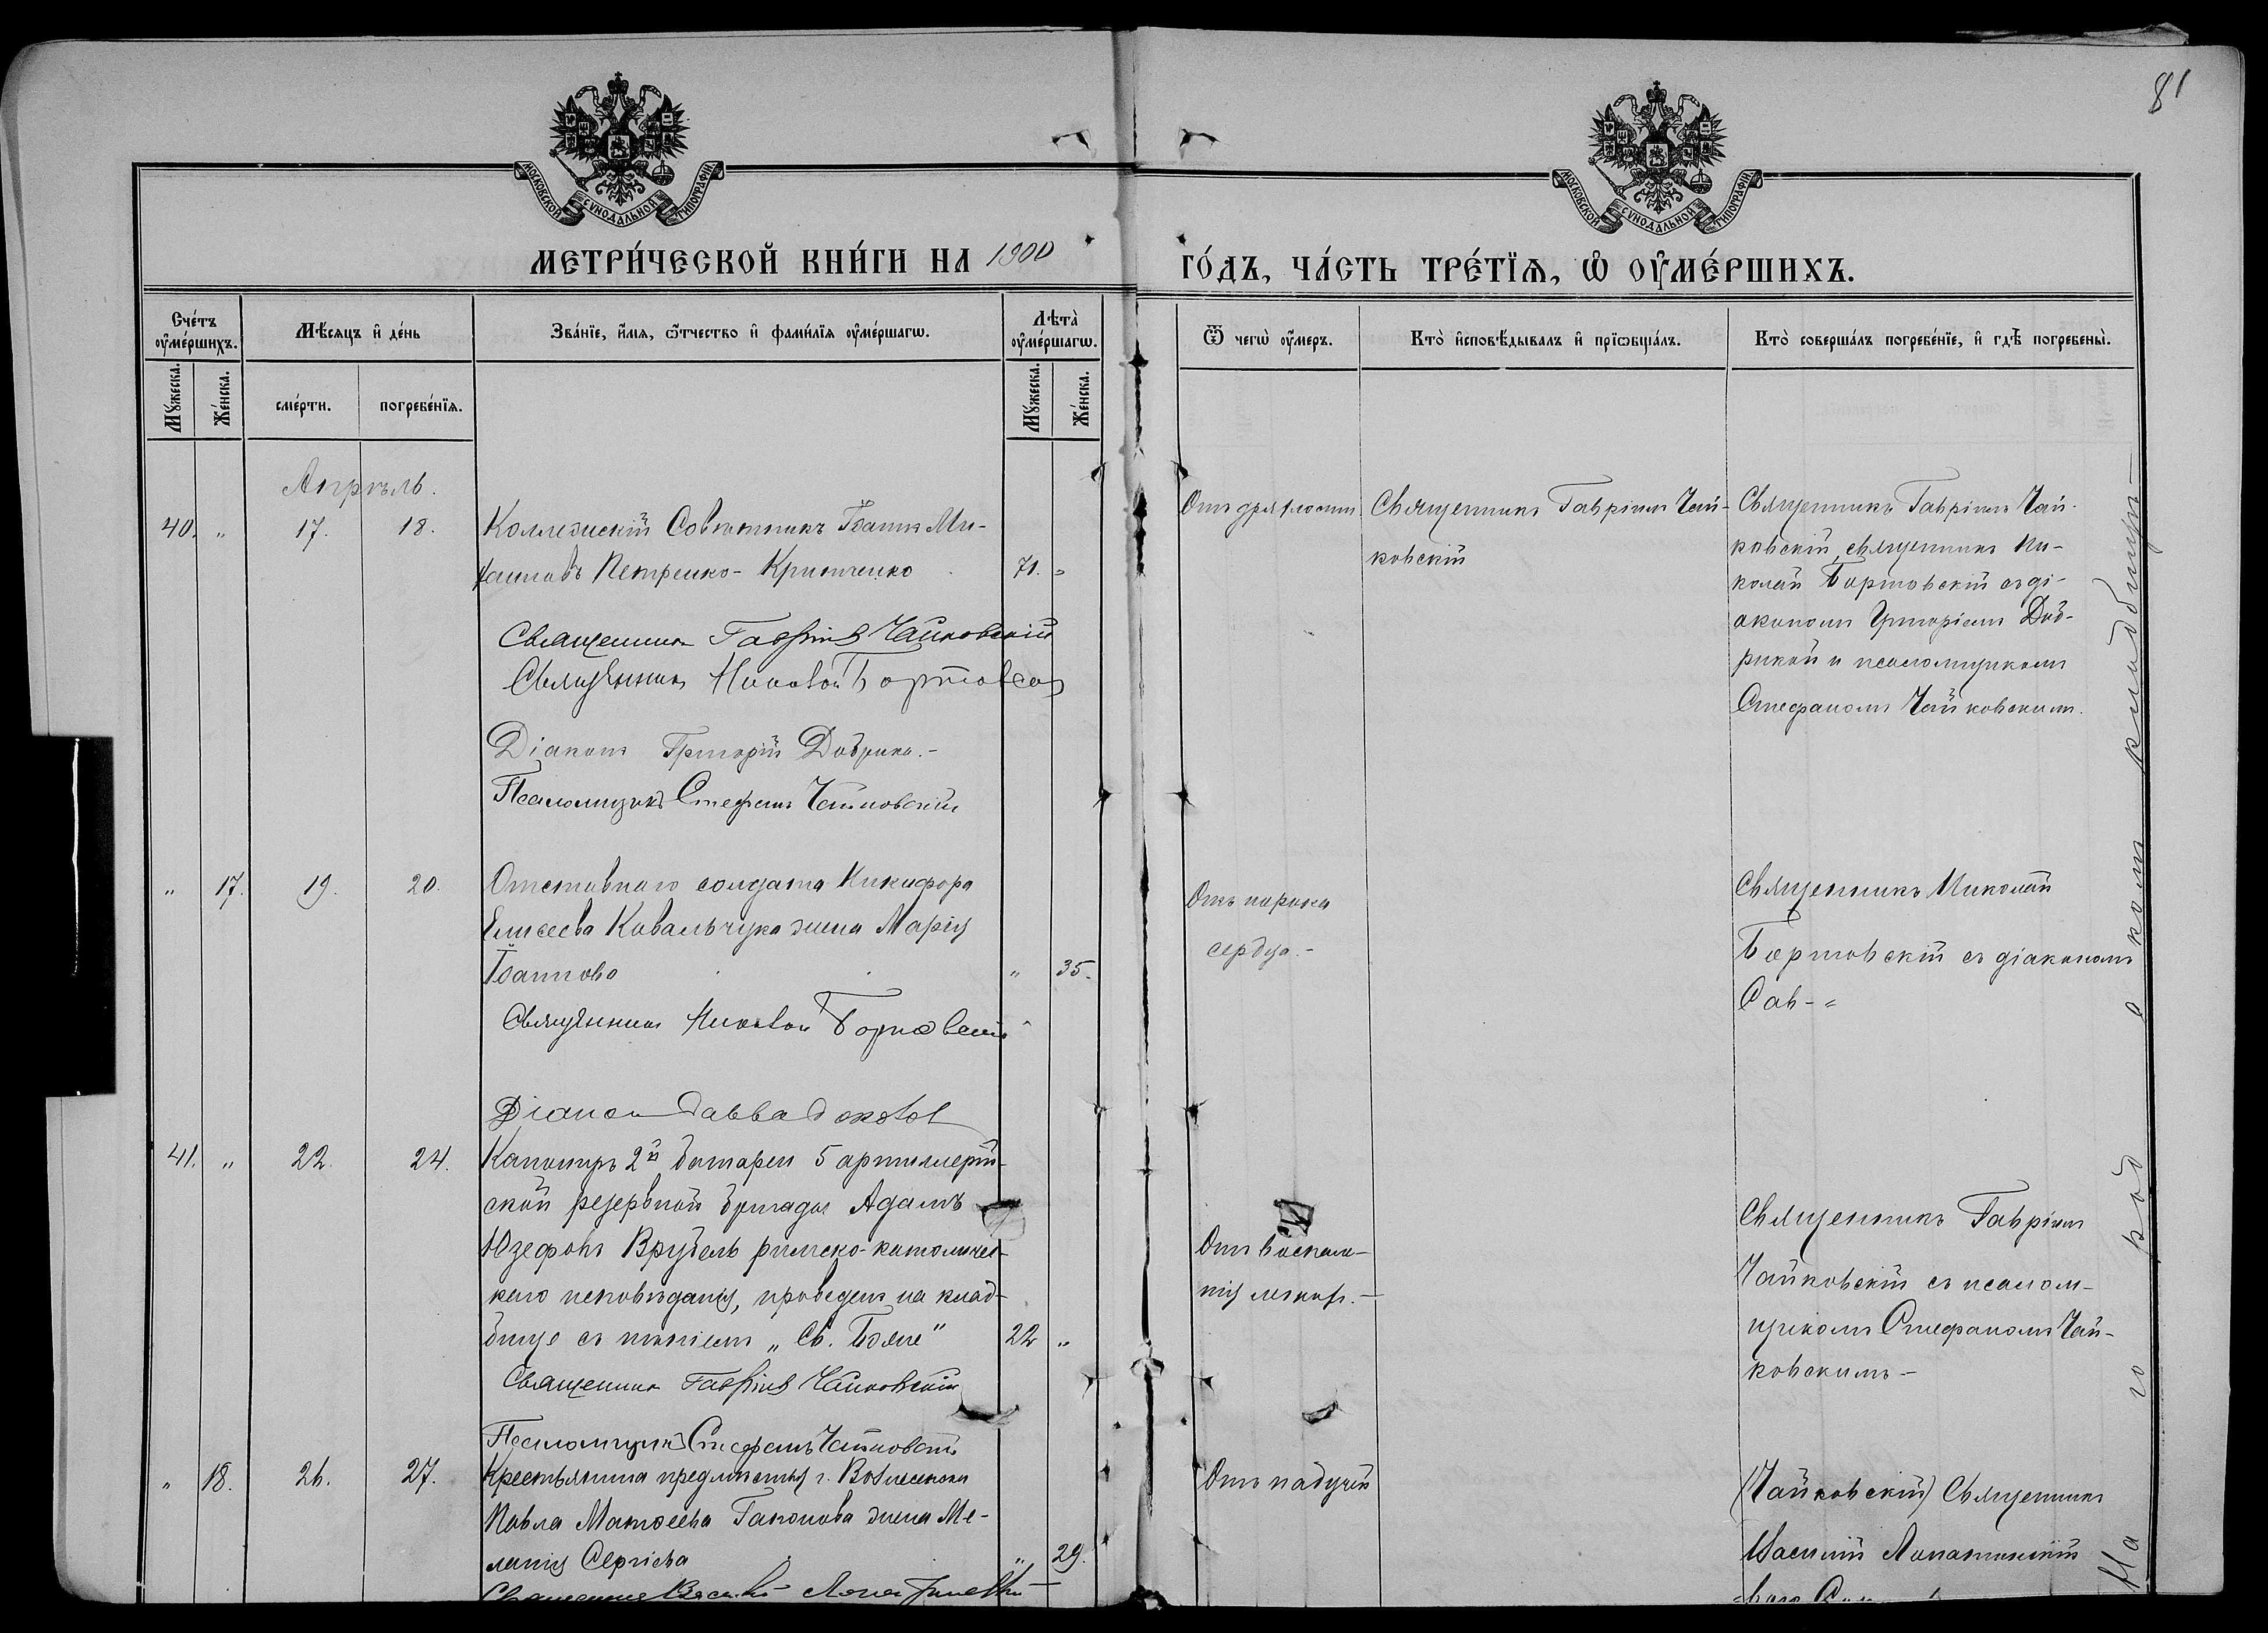 81
МОСКОВСКОЙ СУНОДАЛЬНОЙ ТИПОГРАФІИ
МОСКОВСКОЙ СУНОДАЛЬНОЙ ТИПОГРАФІИ
МЕТРИ́ЧЕСКОЙ КНИ́ГИ НА 1900 ГО́ДЪ, ЧА́СТЬ ТРЕ́ТЇѦ, Ѡ҆ ОУ҆МЕ́РШИХЪ.
Сче́тъ оу҆ме́ршихъ.
Мѣ́сяцъ и҆ де́нь
Зва́нїе, и҆́мѧ, ѻ҆́тчество и҆ фами́лїѧ оу҆ме́ршагѡ.
Лѣта̀ оу҆ме́ршагѡ.
Ѿ чегѡ̀ оу҆́меръ.
Кто̀ и҆сповѣ́дывалъ и҆ прїѡбща́лъ.
Кто̀ соверша́лъ погребе́нїе, и҆ гдѣ̀ погребены̀.
Мꙋ́жеска.
Же́нска.
сме́рти.
погребе́нїѧ.
Мꙋ́жеска.
Же́нска.
Апрѣль.
40. " 17. 18.
Коллежскій Совѣтникъ Іоаннъ Ми-
хаиловъ Петренко-Критченко 71. "
Священникъ Гавріилъ Чайковскій
Священникъ Николай Бортовскій
Діаконъ Григорій Добрика.-
Псаломщикъ Стефанъ Чайковскій
Отъ дряхлости
Священникъ Гавріилъ Чай-
ковскій
Священникъ Гавріилъ Чай-
ковскій, священникъ Ни-
колай Бортовскій съ ді-
акономъ Григоріемъ Доб-
рикой и псаломщикомъ
Стефаномъ Чайковскимъ.
" 17. 19. 20.
Отставного солдата Никифора
Елисеева Ковальчука жена Марія
Іоаннова " 35.
Священникъ Николай Бортовскій
Діаконъ Савва
Отъ порока
сердца.-
Священникъ Николай
Бортовскій съ діакономъ
Сав-
41. " 22. 24.
Канониръ 2й батареи 5 артиллерій-
ской резервной бригады Адамъ
Юзефовъ Врубель римско-католичес-
каго исповѣданія, проведенъ на клад-
бище съ пѣніемъ „Св. Боже" 22 "
Священникъ Гавріилъ Чайковскій
Псаломщикъ Стефанъ Чайковскій
Отъ воспале-
нія легкихъ.-
Священникъ Гавріилъ
Чайковскій съ псалом-
щикомъ Стефаномъ Чай-
ковскимъ-
" 18. 26. 27.
Крестьянина предмѣстья г. Вознесенска
Павла Матвеева Гапонова жена Ме-
ланія Сергіева " 29.
Священникъ Василій Лопатинскій
Отъ падучей
(Чайковскій) Священникъ
Василій Лопатинскій
На городскомъ кладбищѣ-